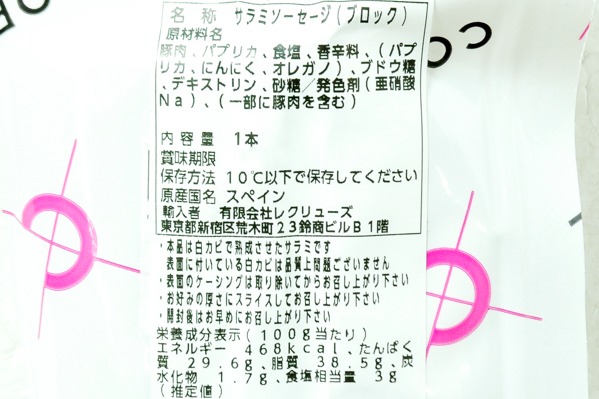 名 称 サラミソーセージ(ブロック)
原材料名
豚肉、パプリカ、食塩、香辛料、(パプ
リカ、にんにく、オレガノ)、ブドウ糖
、デキストリン、砂糖/発色剤(亜硝酸
Na)、(一部に豚肉を含む)
内 容 量 1本
賞味期限
保存方法 10℃以下で保存してください
原産国名 スペイン
輸入者 有限会社レクリューズ
東京都新宿区荒木町23鈴商ビルB1階
・本品は白カビで熟成させたサラミです
・表面に付いている白カビは品質上問題ございません
・表面のケーシングは取り除いてからお召し上がり下さい
・お好みの厚さにスライスしてお召し上がり下さい
・開封後はお早めにお召し上がり下さい
栄養成分表示(100g当たり)
エネルギー 468kcal、たんぱく
質 29.6g、脂質 38.5g、炭
水化物 1.7g、食塩相当量 3g
(推定値)